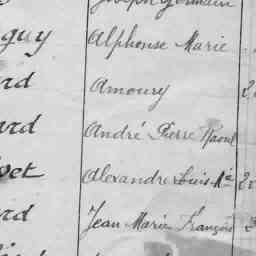 Joseph Germain
guy Alphonse Marie
rd Amoury 2
ard André Pierre Raoul
vet Alexandre Louis Mie 2
rd Jean Marie François